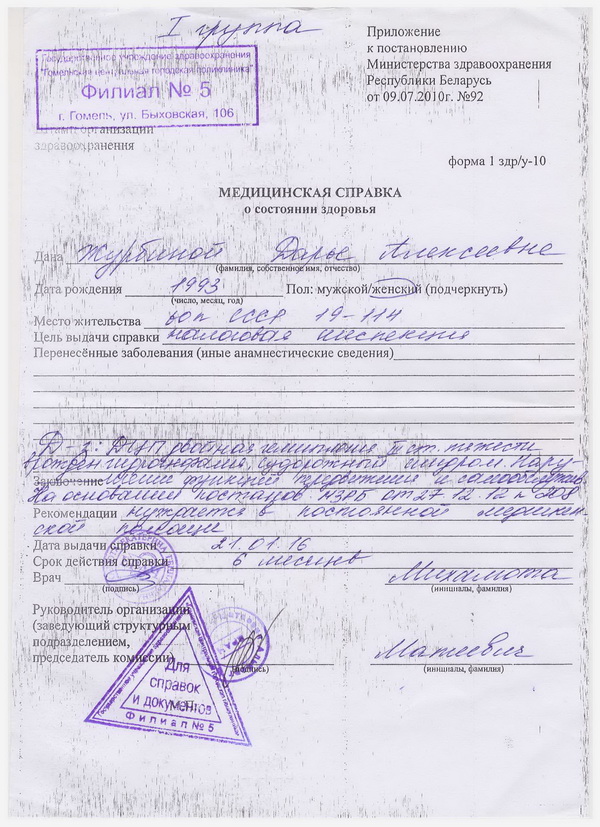 I группа
Приложение
к постановлению
Министерства здравоохранения
Республики Беларусь
от 09.07.2010г. №92
Государственное учреждение здравоохранения
"Гомельская центральная городская поликлиника"
Филиал № 5
г. Гомель, ул. Быховская, 106
Штамп организации
здравоохранения
форма 1 здр/у-10
МЕДИЦИНСКАЯ СПРАВКА
о состоянии здоровья
Дана Журбиной Дарье Алексеевне
(фамилия, собственное имя, отчество)
Дата рождения 1993 Пол: мужской/женский (подчеркнуть)
(число, месяц, год)
Место жительства 50л СССР 19-114
Цель выдачи справки налоговая инспекция
Перенесённые заболевания (иные анамнестические сведения)
Д-з: ДЦП двойная гемиплегия III ст. тяжести
судорожный синдром. Нару
Заключение шение функций передвижения и самообслужив
На основании постанов МЗРБ от 27.12.12 № 208
Рекомендации нуждается в постоянной медицин
ской помощи
Дата выдачи справки 21.01.16
Срок действия справки 6 месяцев
Врач Михамота
(подпись) (инициалы, фамилия)
Руководитель организации
(заведующий структурным
подразделением,
председатель комиссии) Матеевич
(подпись) (инициалы, фамилия)
М.П.
Для
справок
и документов
Филиал №5